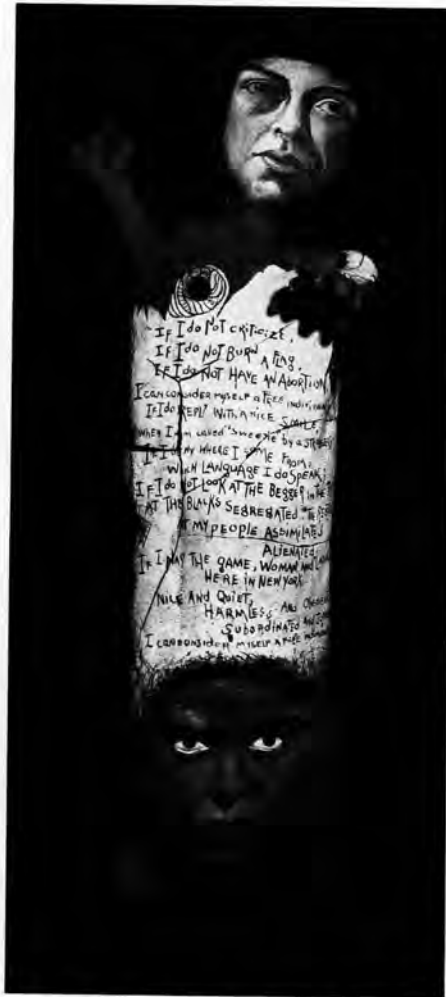 "If I do Not criticize,
If I do Not BURN A FLAG,
If I do NOT HAVE AN ABORTION
I can consider myself a FREE
If I do REPLY WITH A NICE SMILE,
WHEN I am called "sweetie" by a
If I DENY WHERE I COME FROM,
WICH LANGUAGE I do SPEAK;
If I do NOT LOOK AT THE BEGGER in the
AT THE BLACKS SEGREGATED
AT MY PEOPLE ASSIMILATED
ALIENATED
If I PLAY THE GAME, WOMAN AND
HERE IN NEW YORK
NICE AND QUIET,
HARMLESS AND
SUBORDINATED AND
I CAN CONSIDER MYSELF A FREE